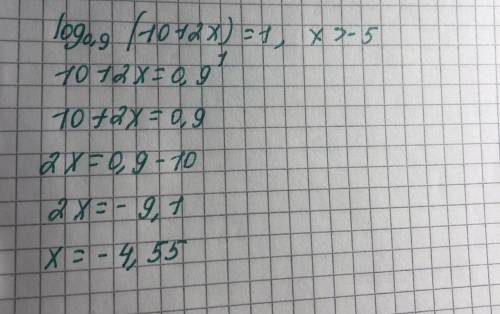 log₀,₉ (10+2x) = 1, x > -5
10+2x = 0,9¹
10+2x = 0,9
2x = 0,9 - 10
2x = - 9,1
x = - 4,55